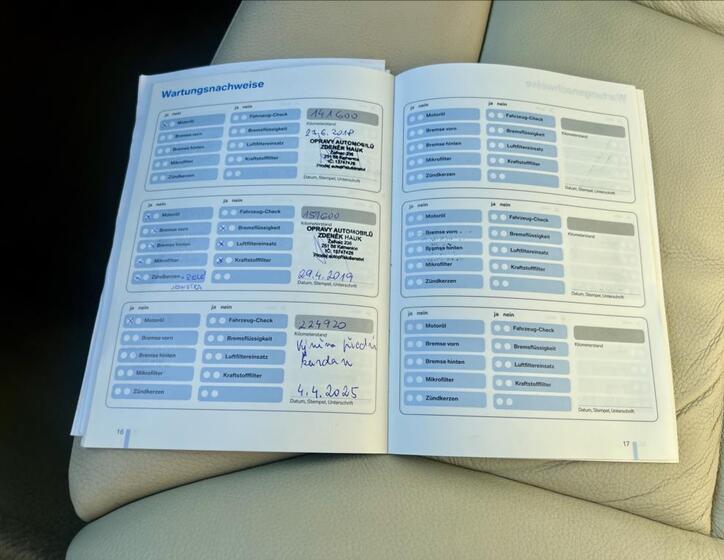 Wartungsnachweise
ja nein
ja nein
Motoröl
Fahrzeug-Check
141600
Kilometerstand
Bremse vorn
Bremsflüssigkeit
Bremse hinten
Luftfiltereinsatz
OPRAVY AUTOMOBILŮ
ZDENĚK HAUK
251 68 Kamenice
Mikrofilter
Kraftstofffilter
Zündkerzen
Datum, Stempel, Unterschrift
ja nein
ja nein
Motoröl
Fahrzeug-Check
151600
Kilometerstand
Bremse vorn
Bremsflüssigkeit
OPRAVY AUTOMOBILŮ
ZDENĚK HAUK
251 68 Kamenice
Bremse hinten
Luftfiltereinsatz
Mikrofilter
Kraftstofffilter
Zündkerzen
29.4.2019
Datum, Stempel, Unterschrift
ja nein
ja nein
Motoröl
Fahrzeug-Check
224920
Kilometerstand
Bremse vorn
Bremsflüssigkeit
Bremse hinten
Luftfiltereinsatz
kardan
Mikrofilter
Kraftstofffilter
Zündkerzen
4.4.2025
Datum, Stempel, Unterschrift
16
ja nein
ja nein
Motoröl
Fahrzeug-Check
Kilometerstand
Bremse vorn
Bremsflüssigkeit
Bremse hinten
Luftfiltereinsatz
Mikrofilter
Kraftstofffilter
Zündkerzen
Datum, Stempel, Unterschrift
ja nein
ja nein
Motoröl
Fahrzeug-Check
Kilometerstand
Bremse vorn
Bremsflüssigkeit
Bremse hinten
Luftfiltereinsatz
Mikrofilter
Kraftstofffilter
Zündkerzen
Datum, Stempel, Unterschrift
ja nein
ja nein
Motoröl
Fahrzeug-Check
Kilometerstand
Bremse vorn
Bremsflüssigkeit
Bremse hinten
Luftfiltereinsatz
Mikrofilter
Kraftstofffilter
Zündkerzen
Datum, Stempel, Unterschrift
17